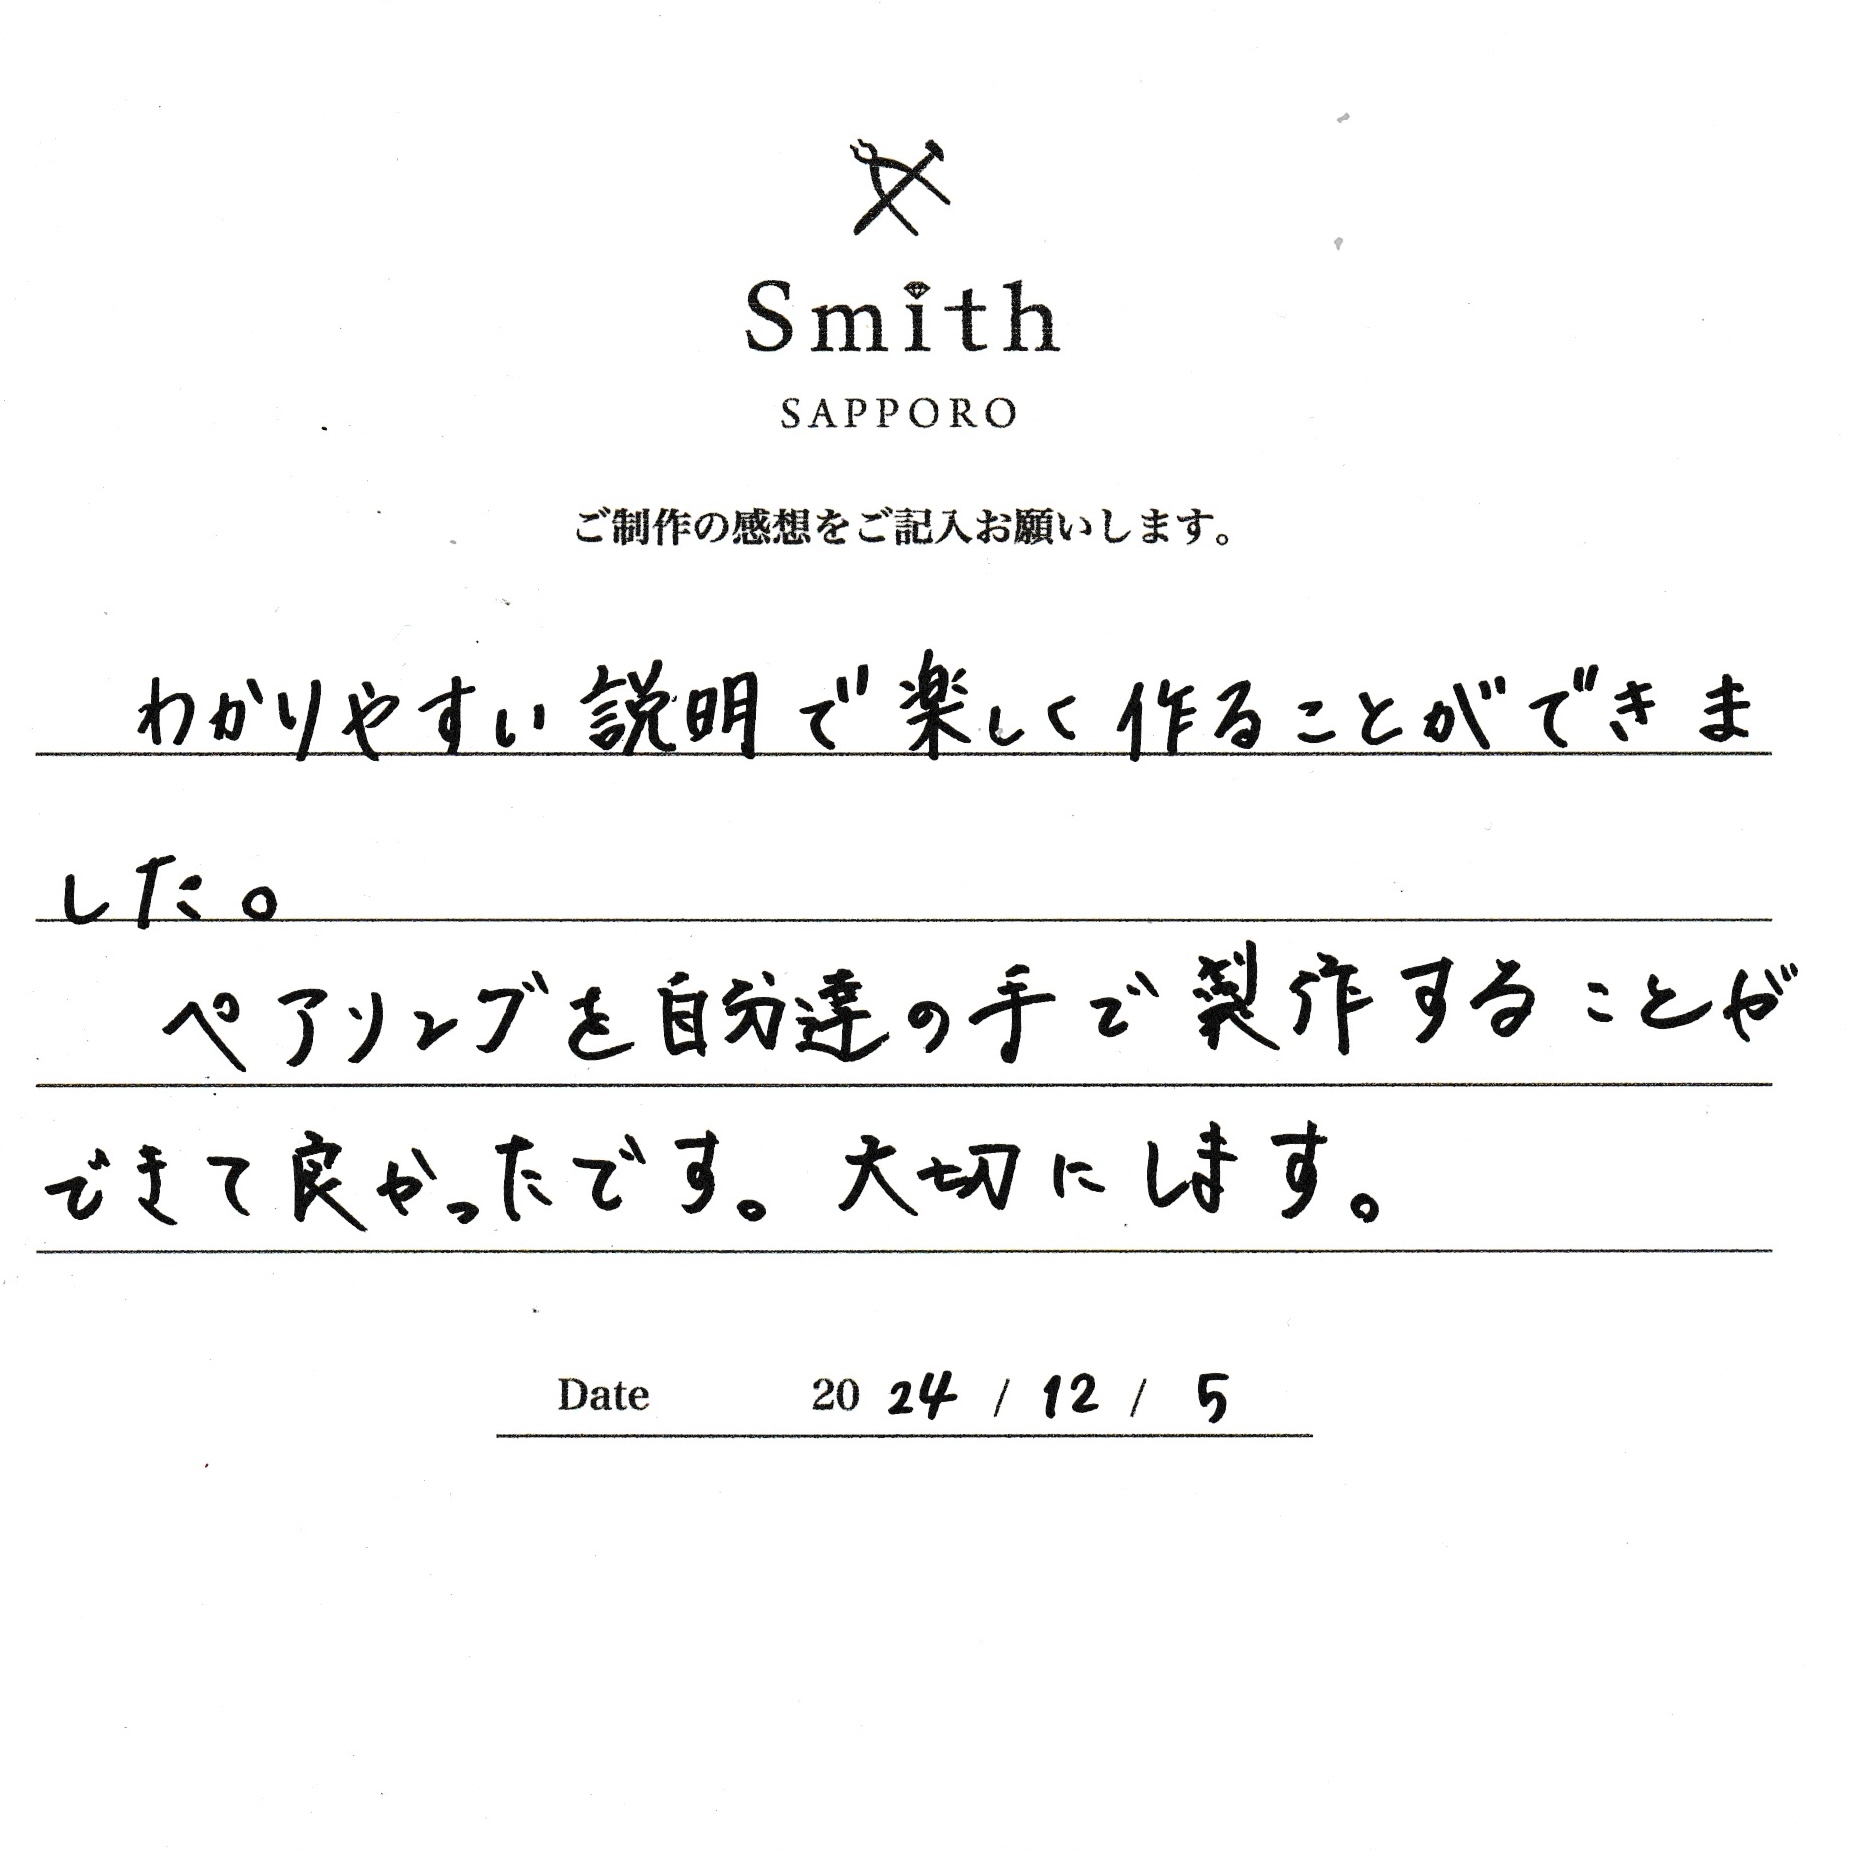 Smith
SAPPORO
ご制作の感想をご記入お願いします。
わかりやすい説明で楽しく作ることができま
した。
ペアリングを自分達の手で製作することが
できて良かったです。大切にします。
Date 2024 / 12 / 5